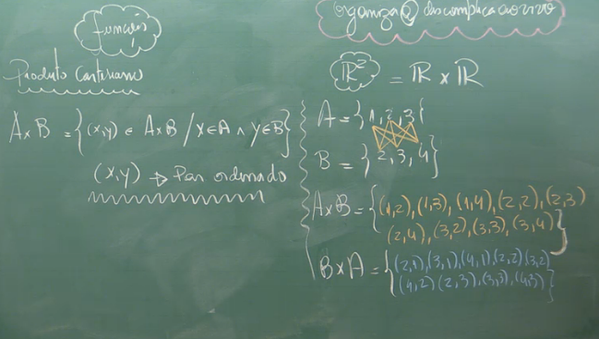 funções
Produto Cartesiano
A x B = {(x,y) ∈ A x B / X ∈ A ∧ Y ∈ B}
(x,y) → Par ordenado
Organiza @ descomplica ao vivo
ℝ² = ℝ x ℝ
A = {1,2,3}
B = {2,3,4}
A x B = {(1,2),(1,3),(1,4),(2,2),(2,3)
(2,4),(3,2),(3,3),(3,4)}
B x A = {(2,1),(3,1),(4,1),(2,2)(3,2)
(4,2)(2,3),(3,3),(4,3)}